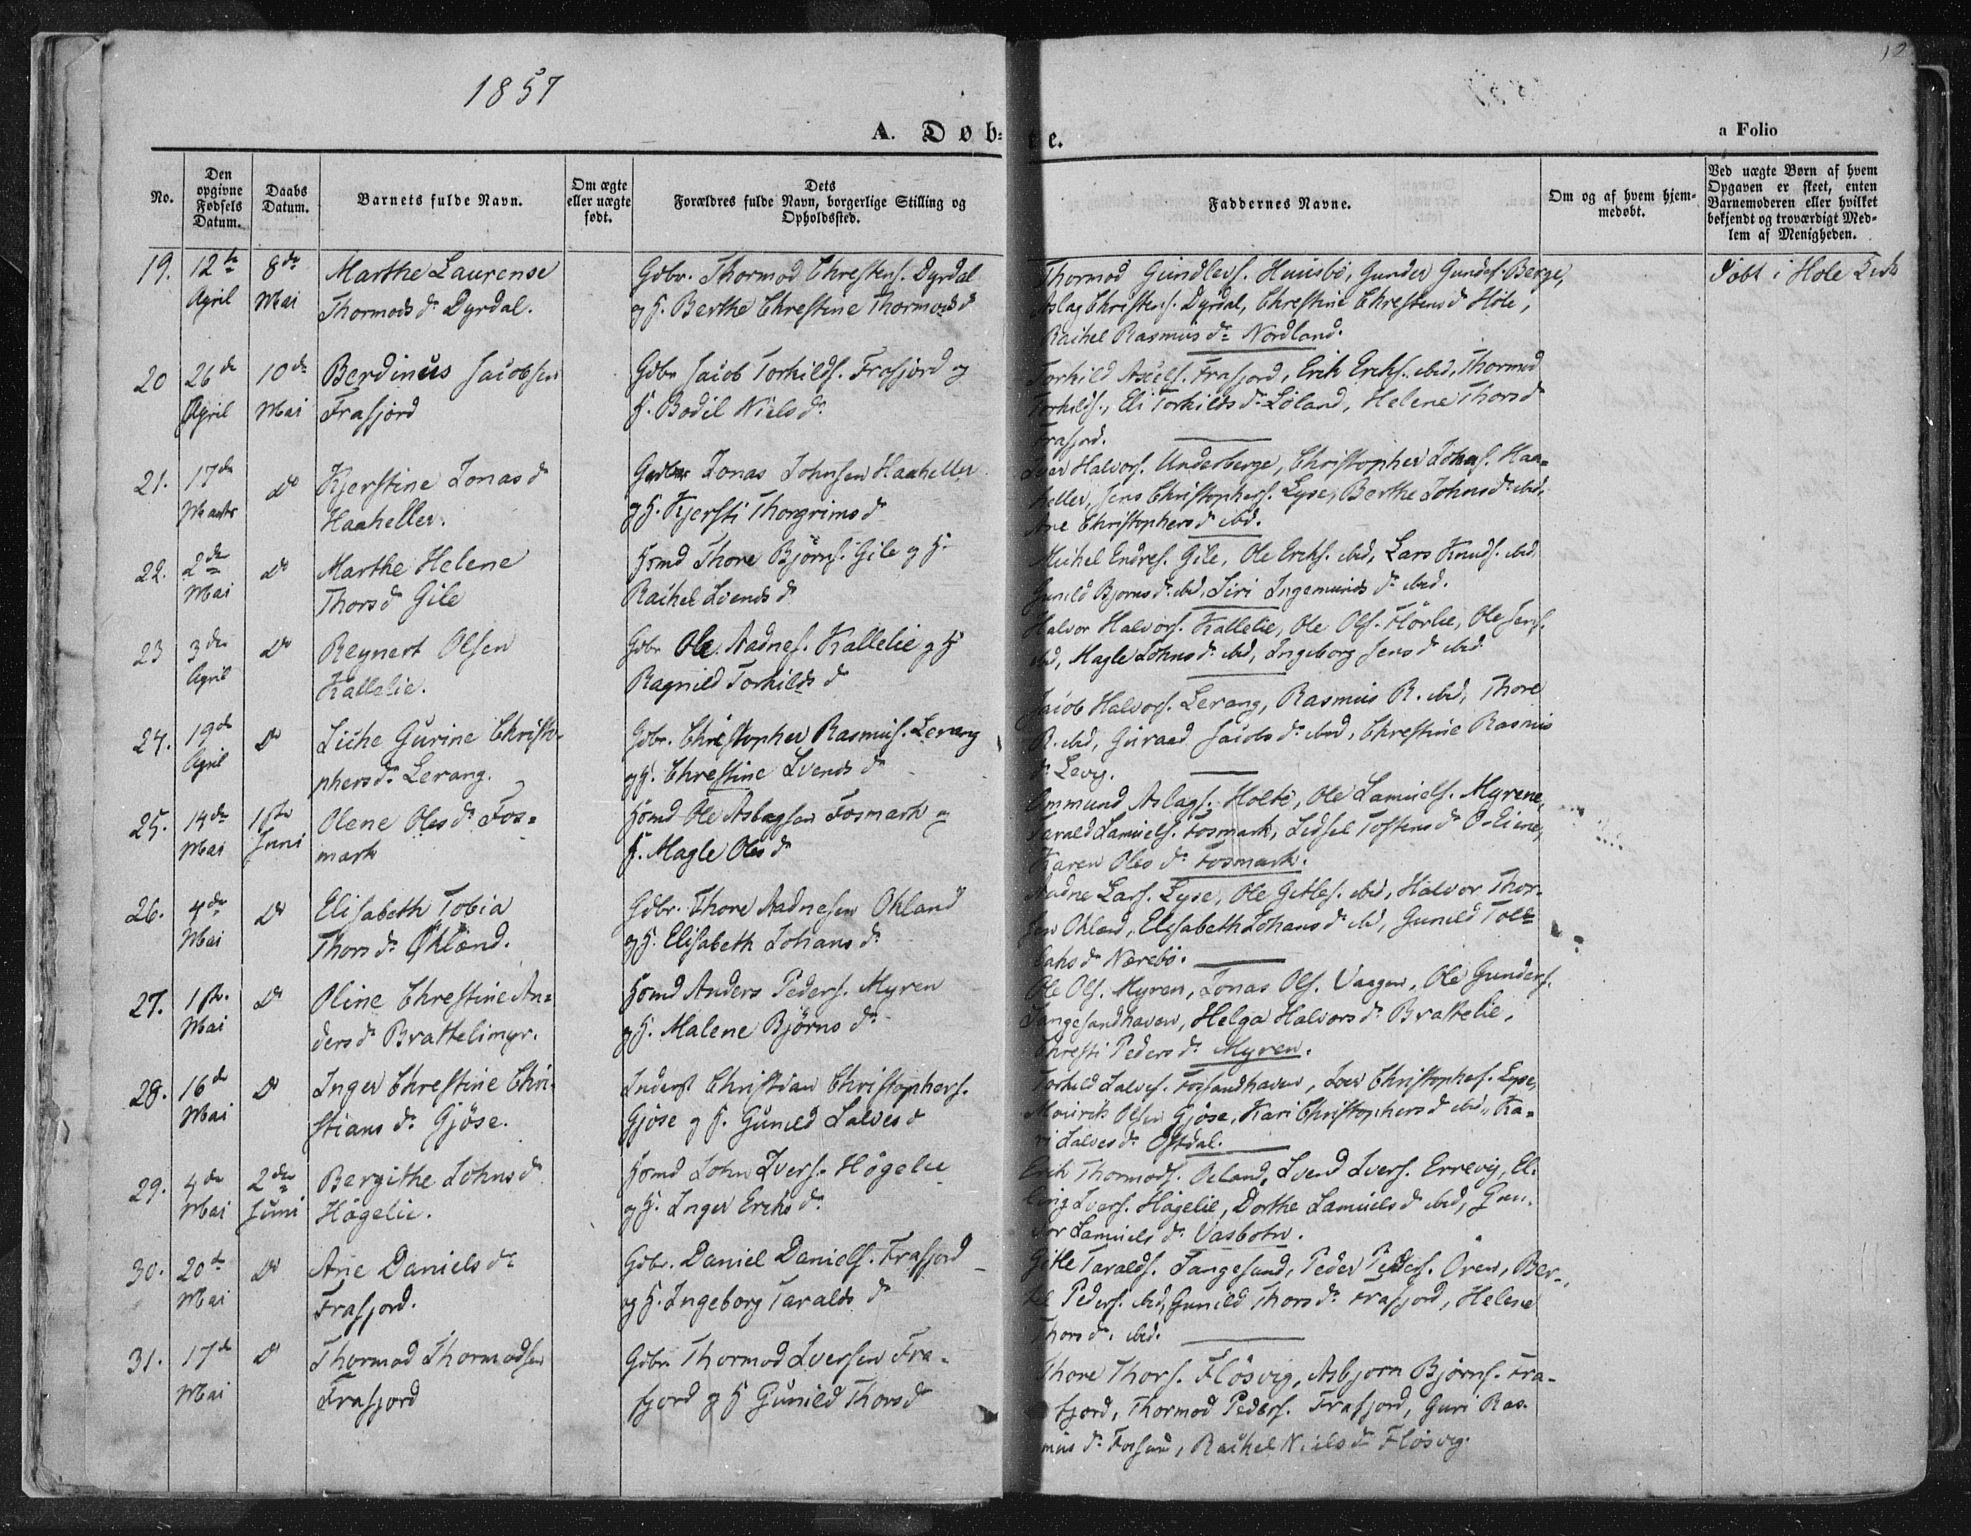 1857
12
A. Døb-
te.
a Folio
No.
Den opgivne Fødsels Datum.
Daabs Datum.
Barnets fulde Navn.
Om ægte eller uægte født.
Dets Forældres fulde Navn, borgerlige Stilling og Opholdssted.
Faddernes Navne.
Om og af hvem hjem-
medøbt.
Ved uægte Børn af hvem
Opgaven er skeet, enten
Barnemoderen eller hvilket
bekjendt og troværdigt Med-
lem af Menigheden.
19. 12te April 8de Mai
Marthe Laurense
Thormodsdr Dyrdal.
Gdbr. Thormod Chrestens. Dyrdal
og H. Berthe Chrestine Thormodsdr
Thormod Gundlevs. Huusbö, Gunder Gunders. Berge,
Aslag Christens. Dyrdal, Chrestine Chrestensdr Höle,
Rachel Rasmusdr Nordland.
Döbt i Hole Kirk
20 26de April 10de Mai
Berdinus Jacobsen
Frafjord
Gdbr Jacob Torkilds. Frafjord og
H. Bodil Nielsdr
Torkild Axels. Frafjord, Erik Ericks. ibid, Thormod
Torkilds., Eli Torkildsdr Löland, Helene Thorsdr
Frafjord.
21. 17de Marts Do
Kjerstine Jonasdr
Haaheller.
Gdbr Jonas Johnsen Haaheller
og H. Kjersti Thorgrimsdr
Iver Halvors. Underberge, Christopher Johns. Haa-
heller, Jens Christophers. Lyse, Berthe Johnsdr ibid,
Ane Christophersdr ibid.
22. 2den Mai Do
Marthe Helene
Thorsdr Gile
Hsmd Thore Björns. Gile og H.
Rachel Svendsdr
Michel Endres. Gile, Ole Ericks. ibid, Lars Knuds. ibid
Gunild Bjornsdr ibid, Siri Ingemundsdr ibid.
23 3die April Do
Reynert Olsen
Kallelie.
Gdbr Ole Aadnes. Kallelie og H
Ragnild Torkildsdr
Halvor Halvors. Kallelie, Ole Ols. Flörlie, Ole Jens.
ibid, Magle Johnsdr ibid, Ingeborg Jensdr ibid
24. 19de April Do
Siche Gurine Christo-
phersdr Lerang.
Gdbr. Christopher Rasmus. Lerang
og H. Chrestine Svendsdr
Jacob Halvors. Lerang, Rasmus R. ibid, Thore
R. ibid, Guraad Jacobsdr ibid, Chrestine Rasmus
dr Levig.
25. 14de Mai 1ste Juni
Olene Olesdr Fos-
mark
Hsmd Ole Aslagsen Fosmark og
H. Magle Olesdr
Ommund Aslags. Holte, Ole Samuels. Myrene,
Tarald Samuels. Fosmark, Sidsel Tostensdr
Karen Olesdr Fosmark.
26. 4de Mai Do
Elisabeth Tobia
Thorsdr Økland.
Gdbr. Thore Aadnesen Okland
og H. Elisabeth Johansdr
Aadne Lars. Lyse, Ole Gitles. ibid, Halvor Thor-
sen Okland, Elisabeth Johansdr ibid, Gunild Toll-
laksdr Nærebö.
27. 1ste Mai Do
Oline Chrestine An-
dersdr Brattelimyr.
Hsmd Anders Peders. Myren
og H. Malene Björnsdr
Ole Ols. Myren, Jonas Ols. Vaagen, Ole Gunders.
Tangesandhaven, Helga Halvorsdr Brattelie,
Chresti Pedersdr Myren.
28. 16de Mai Do
Inger Chrestine Chri-
stiansdr Gjöse.
Inderst Christian Christophers.
Gjöse og H. Gunild Salvesdr
Torkild Salves. Fossandhaven, Iver Christophes. Lyse,
Mourits Olsen Gjöse, Kari Christophersdr ibid, Ka-
ri Salvesdr Östdal.
29. 4de Mai 2den Juni
Bergithe Johnsdr
Högelie.
Hsmd John Ivers. Högelie
og H. Inger Ericksdr
Erik Thormods. Oeland, Svend Ivers. Errevig, El-
ling Ivers. Högelie, Dorthe Samuelsdr ibid, Gun-
vor Samuelsdr Vasbotn.
30. 20de Mai Do
Ane Danielsdr
Frafjord.
Gdbr. Daniel Daniels. Frafjord
og H. Ingeborg Taraldsdr
Gitle Taralds. Tangesand, Peder Peders. Ören, Ber-
tel Peders. ibid, Gunild Thorsdr Frafjord, Helene
Thorsdr. ibid.
31. 17de Mai Do
Thormod Thormodsen
Frafjord
Gdbr Thormod Iversen Fra-
fjord og H Gunild Thorsdr
Thore Thors. Flösvig, Asbjorn Björns. Fra-
fjord, Thormod Peders. Frafjord, Guri Ras-
musdr Forsand, Rachel Nielsdr Flösvig.